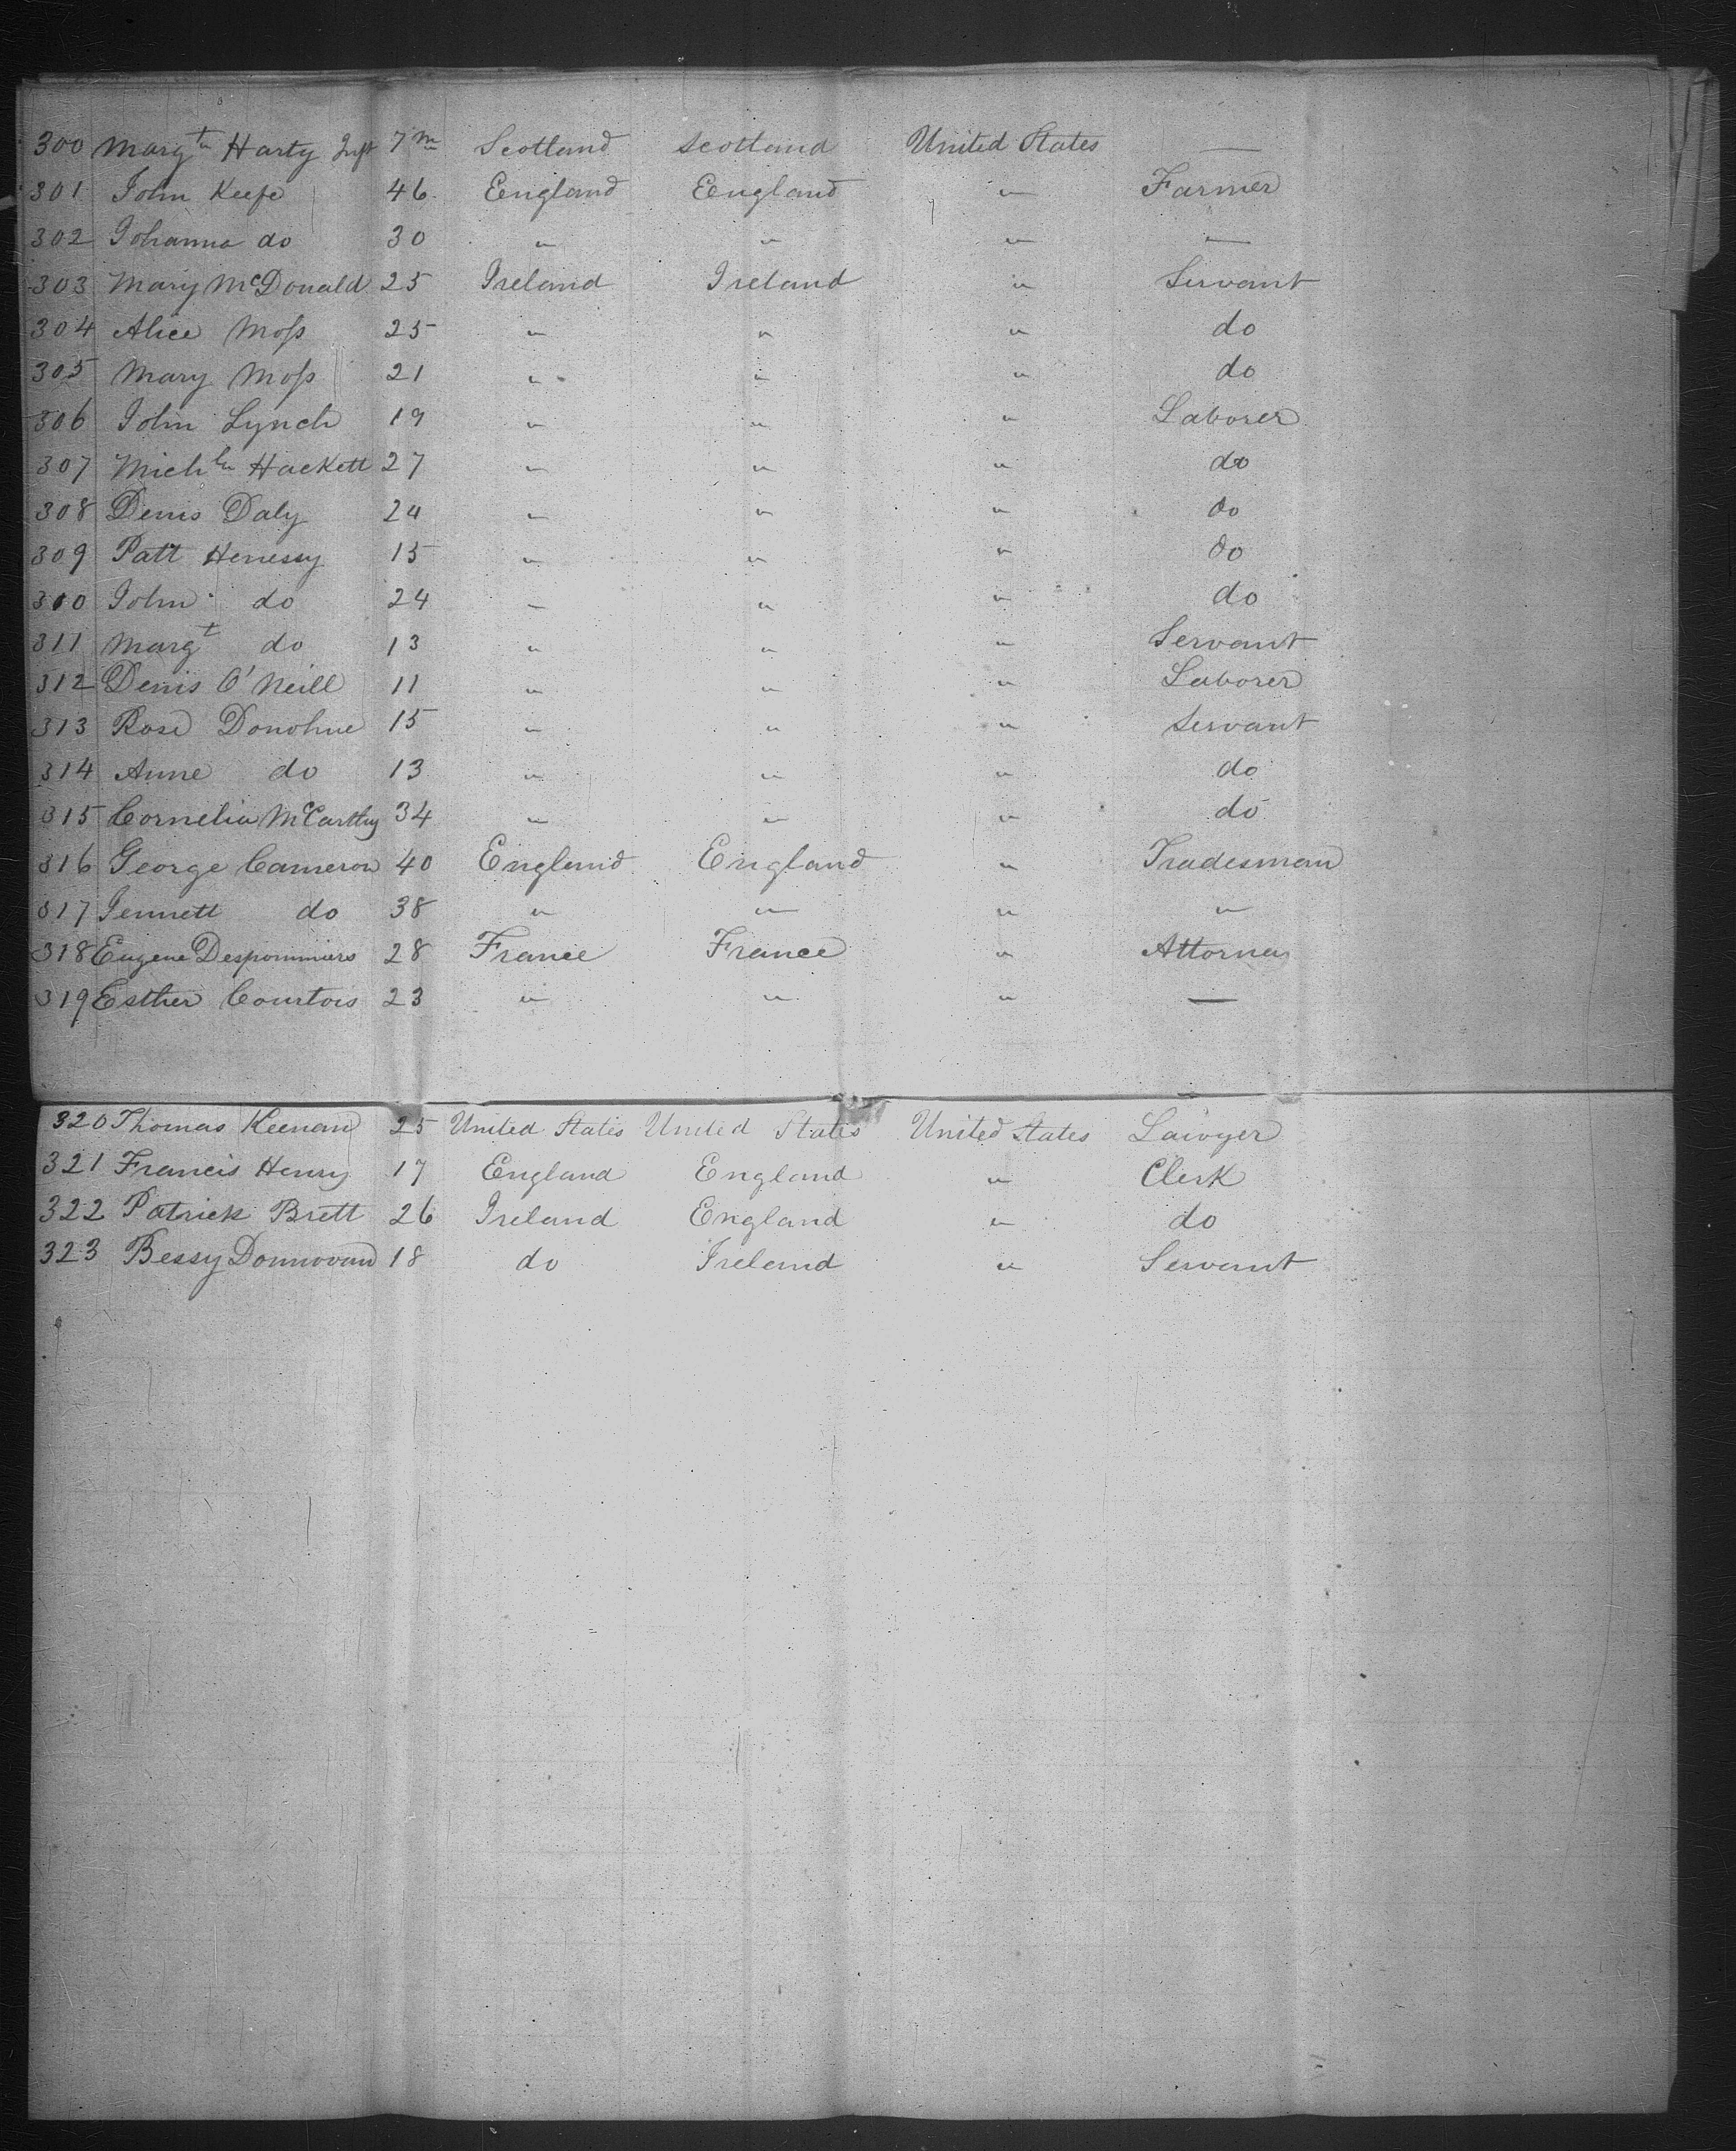 300 Margt Harty Inft 7 m Scotland Scotland United States —
301 John Keefe 46 Eengland Eengland " Farmer
302 Johanna do 30 " " " —
303 Mary McDonald 25 Ireland Ireland " Servant
304 Alice Moss 25 " " " do
305 Mary Moss 21 " " " do
306 John Lynch 19 " " " Laborer
307 Michl Hackett 27 " " " do
308 Denis Daly 24 " " " do
309 Patt Henessy 15 " " " do
300 John do 24 " " " do
311 Margt do 13 " " " Servant
312 Denis O'Neill 11 " " " Laborer
313 Rose Donohue 15 " " " Servant
314 Anne do 13 " " " do
315 Cornelia McCarthy 34 " " " do
316 George Cameron 40 England England " Tradesman
317 Jennett do 38 " " " "
318 Eugene Despommiers 28 France France " Attorney
319 Esther Courtois 23 " " " —
320 Thomas Keenan 25 United States United States United States Lawyer
321 Francis Henry 17 England England " Clerk
322 Patrick Brett 26 Ireland England " do
323 Bessy Donnovan 18 do Ireland " Servant